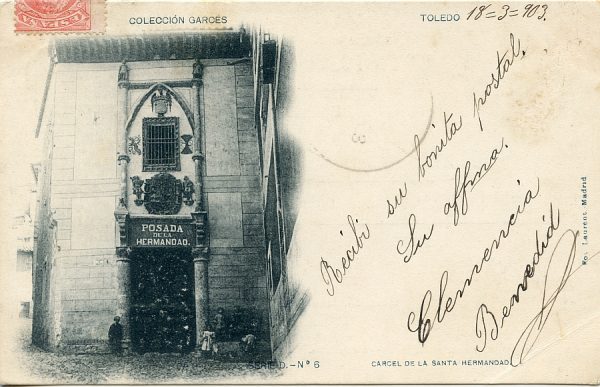 COLECCIÓN GARCÉS
TOLEDO 18=3=903.
POSADA
DE LA
HERMANDAD.
Recibi su bonita postal.
Su affma.
Clemencia
Benedid
Fo. Laurent. Madrid
D.-Nº 6
CARCEL DE LA SANTA HERMANDAD.